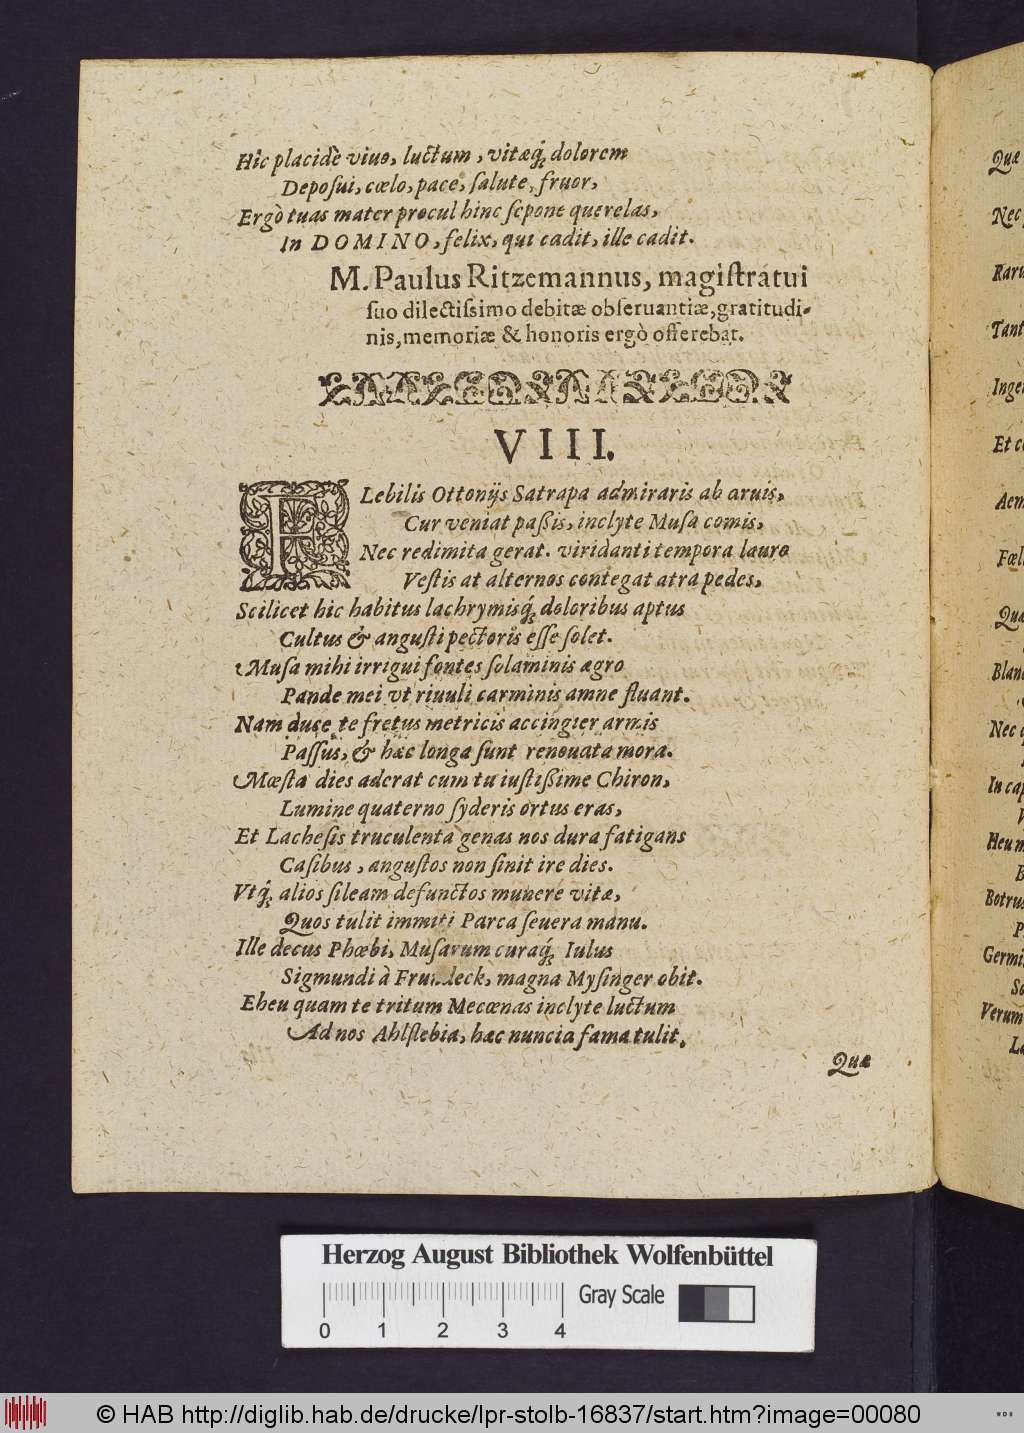 Hic placidè viuo, luctum, vitæq́; dolorem
Deposui, cœlo, pace, salute, fruor,
Ergò tuas mater procul hinc sepone querelas,
In DOMINO, felix, qui cadit, ille cadit.
M. Paulus Ritzemannus, magistratui
suo dilectissimo debitæ obseruantiæ, gratitudi-
nis, memoriæ & honoris ergò offerebat.
VIII.
FLebilis Ottonijs Satrapa admiraris ab aruis,
Cur veniat passis, inclyte Musa comis,
Nec redimita gerat. viridanti tempora lauro
Vestis at alternos contegat atra pedes,
Scilicet hic habitus lachrymisq́; doloribus aptus
Cultus & angusti pectoris esse solet.
Musa mihi irrigui fontes solaminis ægro
Pande mei vt riuuli carminis amne fluant.
Nam duce te fretus metricis accingier armis
Passus, & hæc longa sunt renouata mora.
Mœsta dies aderat cum tu iustissime Chiron,
Lumine quaterno syderis ortus eras,
Et Lachesis truculenta genas nos dura fatigans
Casibus, angustos non sinit ire dies.
Vtq́; alios sileam defunctos munere vitæ,
Quos tulit immiti Parca seuera manu.
Ille decus Phœbi, Musarum curaq́; Iulus
Sigmundi à Frundeck, magna Mysinger obit.
Eheu quam te tritum Mecœnas inclyte luctum
Ad nos Ahlslebia, hæc nuncia fama tulit.
Quæ
Quæ
Nec
Raru
Tant
Inge
Et c
Aem
Fœl
Quæ
Blan
Nec
In cap
Heu m
Botrus
Germi
Verum
La
Herzog August Bibliothek Wolfenbüttel
0 1 2 3 4
Gray Scale
© HAB http://diglib.hab.de/drucke/lpr-stolb-16837/start.htm?image=00080